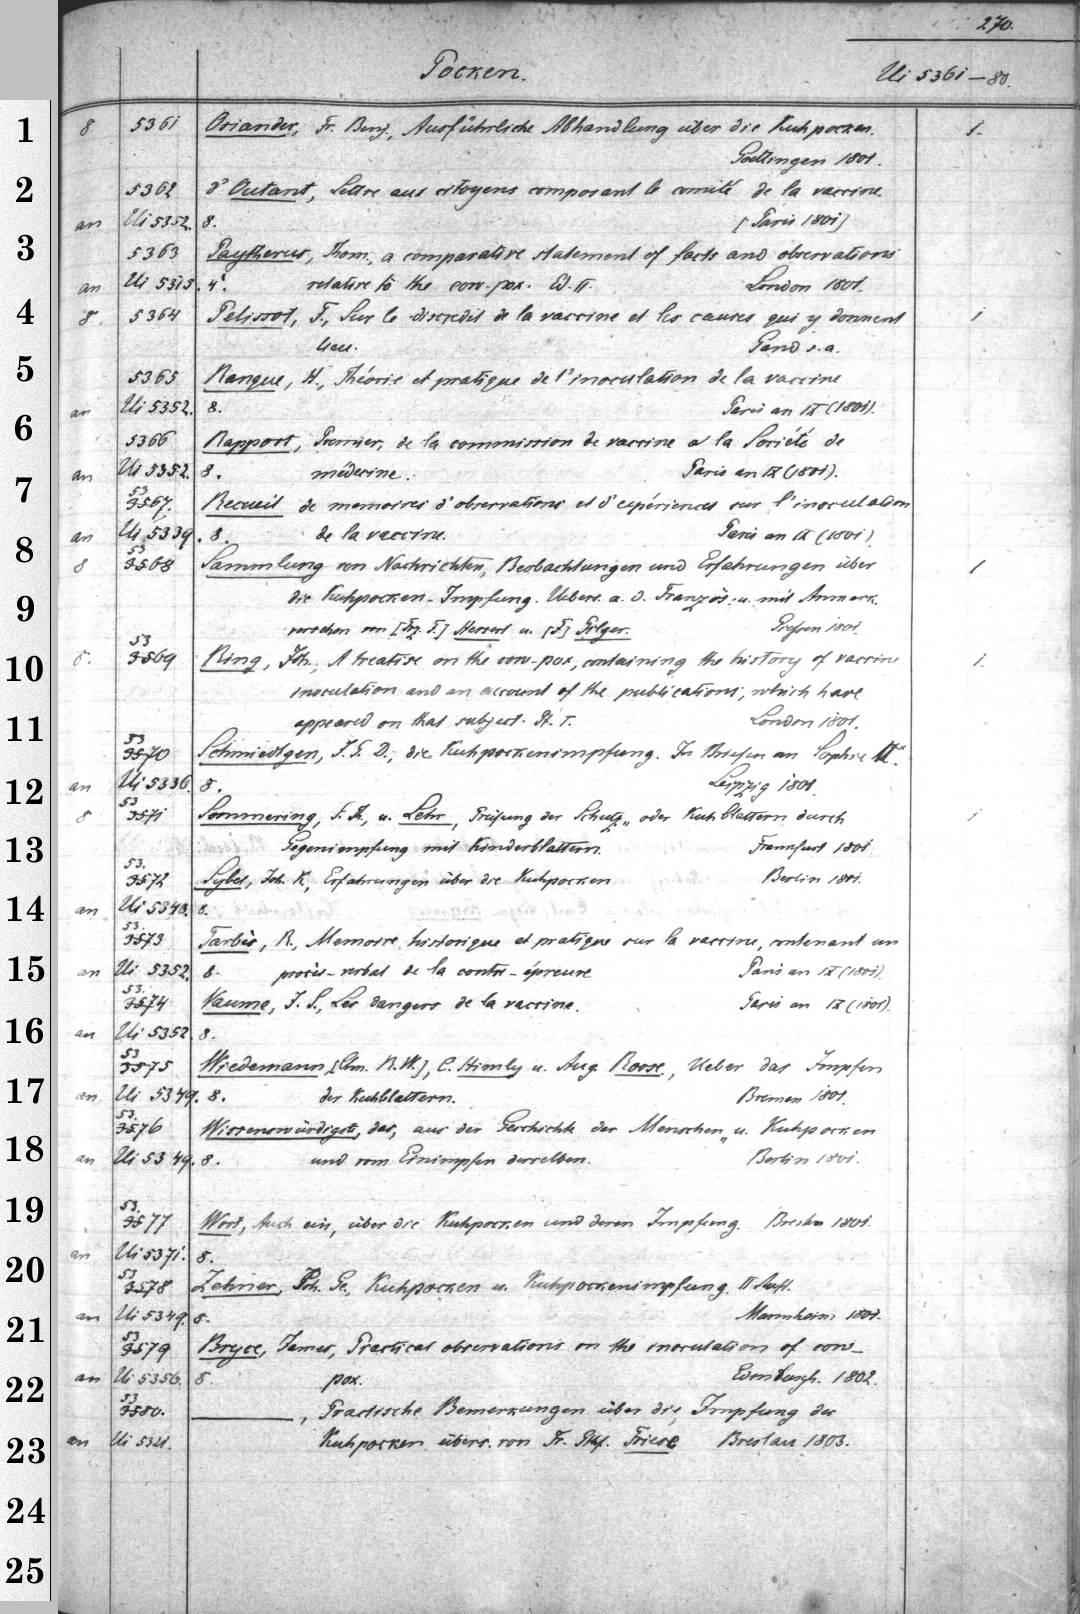 270.
Pocken. Ui 5361-80.
1 8 5361 Osiander, Fr. Benj., Ausführliche Abhandlung über die Kuhpocken. 1.
Goettingen 1801.
2 5362 d'Outant, Lettre aux citoyens composant le comité de la vaccine.
an Ui 5352. 8. [Paris 1801]
3 5363 Paytherus, Thom., a comparative statement of facts and observations
an Ui 5313. 4°. relative to the cow-pox. Ed. II. London 1801.
4 8. 5364 Pelissot, F., Sur le discredit de la vaccine et les causes qui y donnent 1
lieu. Gand s.a.
5 5365 Ranque, H., Théorie et pratique de l'inoculation de la vaccine
an Ui 5352. 8. Paris an IX (1801).
6 5366 Rapport, Premier, de la commission de vaccine a la Société de
an Ui 5352. 8. médecine. Paris an IX (1801).
7 53
3567. Recueil de memoires d'observations et d'expériences sur l'inoculation
an Ui 5339. 8. de la vaccine. Paris an IX (1801).
8 53
8 3568 Sammlung von Nachrichten, Beobachtungen und Erfahrungen über 1
9 die Kuhpocken-Impfung. Uebers. a. d. Französ. u. mit Anmerk.
versehen von [Frz. F.] Hessert u. [F] Pilger. Giessen 1801.
53
10 8. 3569 Ring, Joh., A treatise on the cow-pox, containing the history of vaccine 1.
inoculation and an account of the publications, which have
11 appeared on that subject. Pt. I. London 1801.
53
3570 Schmiedtgen, J. G. D., die Kuhpockenimpfung. In Briefen an Sophie
12 an Ui 5336. 8. Leipzig 1801.
53
8 3571 Sommering, S. Th., u. Lehr, Prüfung der Schutz- oder Kuhblattern durch 1
13 Gegenimpfung mit Kinderblattern. Frankfurt 1801.
53.
3572 Sybel, Joh. K., Erfahrungen über die Kuhpocken Berlin 1801.
14 an Ui 5340. 8.
53.
3573 Tarbès, R., Memoire historique et pratique sur la vaccine, contenant un
15 an Ui 5352. 8. procès-verbal de la contre-épreuve Paris an IX (1801).
53.
3574 Vaume, J. S., Les dangers de la vaccine. Paris an IX (1801).
16 an Ui 5352. 8.
53
3575 Wiedemann, [Chn. R. W.], C. Himly u. Aug. Roose, Ueber das Impfen
17 an Ui 5349. 8. der Kuhblattern. Bremen 1801.
53.
3576 Wissenswürdigste, das, aus der Geschichte der Menschen- u. Kuhpocken
18 an Ui 5349. 8. und vom Einimpfen derselben. Berlin 1801.
53.
19 3577 Wort, Auch ein, über die Kuhpocken und deren Impfung. Breslau 1801.
20 an Ui 5371. 8.
53
3578 Zehner, Joh. Ge., Kuhpocken u. Kuhpockenimpfung. II Aufl.
21 an Ui 5349. 8. Mannheim 1801.
53
3579 Bryce, James, Practical observations on the inoculation of cow-
22 an Ui 5356. 8. pox. Edinburgh. 1802.
53
3580. ———, Practische Bemerkungen über die Impfung der
23 an Ui 5321. Kuhpocken übers. von Fr. Friese Breslau 1803.
24
25